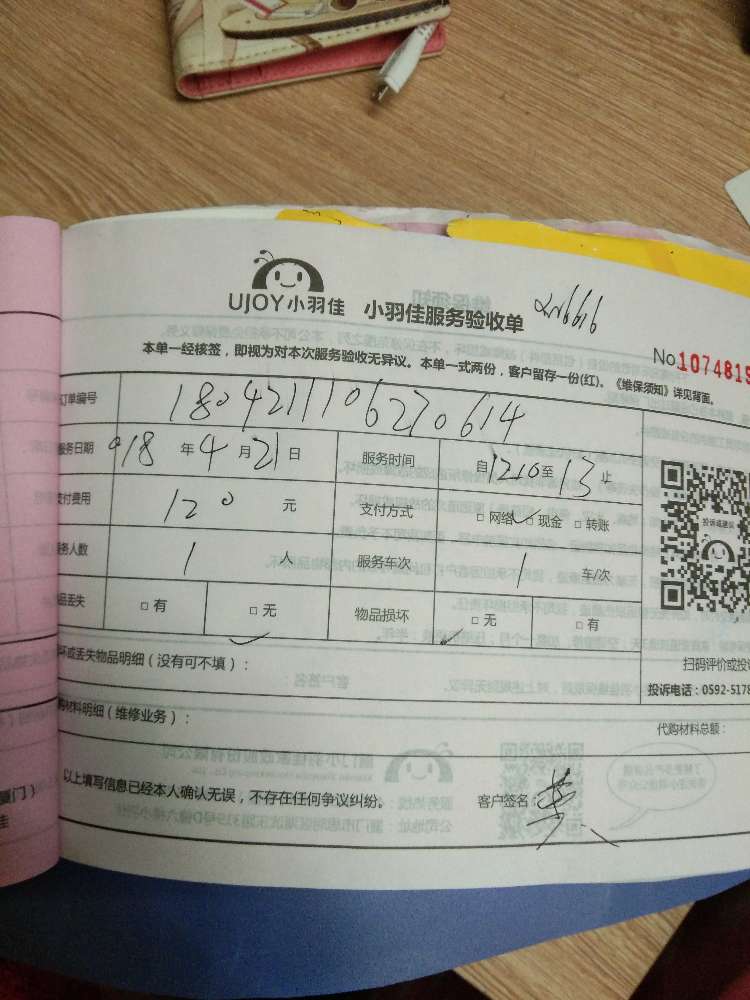 UJOY小羽佳 小羽佳服务验收单
No.1074819
本单一经核签，即视为对本次服务验收无异议。本单一式两份，客户留存一份(红)。《维保须知》详见背面。
订单编号 1804211106270614
服务日期 018 年 4 月 21 日 服务时间 自 1210 至 13 止
支付费用 120 元 支付方式 □ 网络 □ 现金 □ 转账
服务人数 1 人 服务车次 1 车/次
品丢失 □ 有 □ 无 物品损坏 □ 无 □ 有
投诉或建议
扫码评价或投诉
坏或丢失物品明细（没有可不填）：
投诉电话：0592-5178
购材料明细（维修业务）：
代购材料总额：
以上填写信息已经本人确认无误，不存在任何争议纠纷。 客户签名：
厦门）
佳